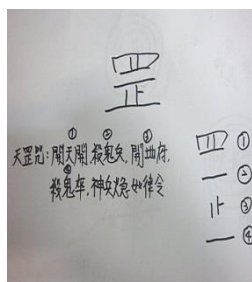 罡
① ② ③
天罡咒:開天開,殺鬼兵,開地府,
④
殺鬼卒,神兵火急如律令
罒 ①
一 ②
止 ③
一 ④